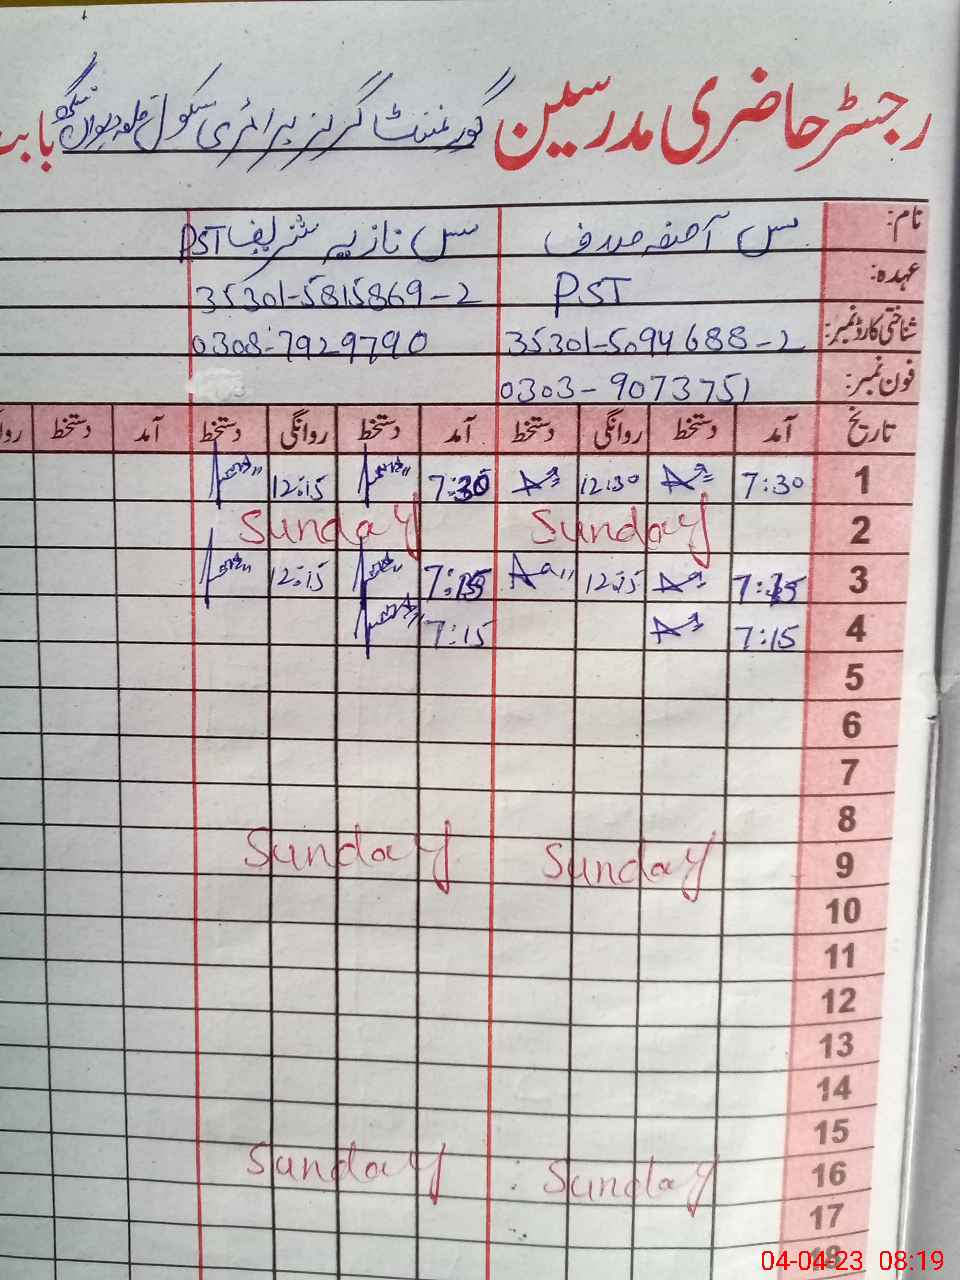 رجسٹر حاضری مدرسین گورنمنٹ گرلز پرائمری سکول قلعہ دیوان سنگھ بابت
نام: مس آصفہ صدف مس نازیہ شریف PST
عہدہ: PST 35301-5815869-2
شناختی کارڈ نمبر: 35301-5094688-2 0308-7929790
فون نمبر: 0303-9073751
تاریخ آمد دستخط روانگی دستخط آمد دستخط روانگی دستخط آمد دستخط
1 7:30 12:30 7:30 12:15
2 Sunday Sunday
3 7:15 12:15 7:15 12:15
4 7:15 7:15
5
6
7
8
9 Sunday Sunday
10
11
12
13
14
15
16 Sunday Sunday
17
18
04-04-23 08:19